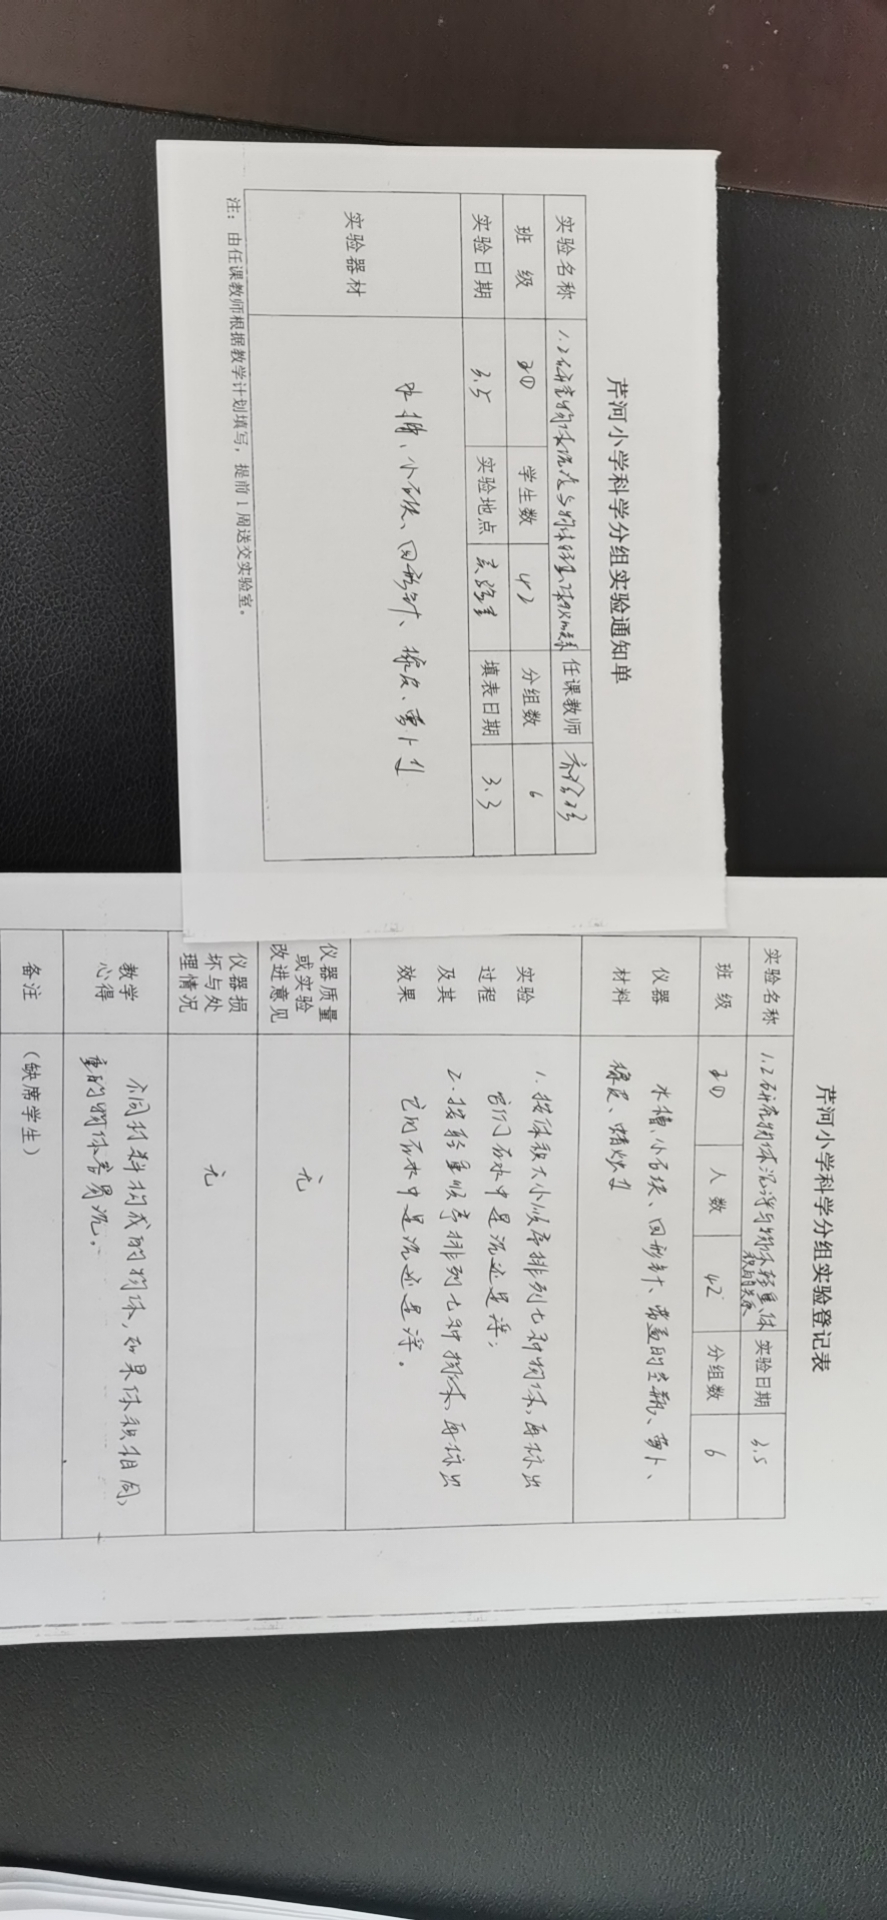 芹河小学科学分组实验通知单
实验名称 1.2研究物体沉浮与物体轻重、体积的关系 任课教师
班 级 学生数 42 分组数 6
实验日期 3.5 实验地点 实验室 填表日期 3.3
实验器材 水槽、小石块、回形针、橡皮、萝卜等
注：由任课教师根据教学计划填写，提前1周送交实验室。
芹河小学科学分组实验登记表
实验名称 1.2研究物体沉浮与物体轻重、体积的关系 实验日期 3.5
班 级 人 数 42 分组数 6
仪器材料 水槽、小石块、回形针、带盖的空瓶、萝卜、
橡皮、蜡烛等
实验过程及其效果 1.按体积大小顺序排列七种物体，再标出
它们在水中是沉还是浮；
2.按轻重顺序排列七种物体，再标出
它们在水中是沉还是浮。
仪器质量或实验改进意见 无
仪器损坏与处理情况 无
教学心得 不同材料构成的物体，如果体积相同，
重的物体容易沉。
备注 （缺席学生）